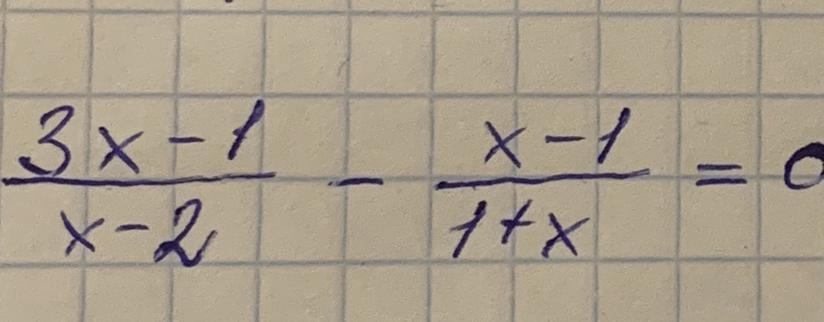 (3x-1)/(x-2) - (x-1)/(1+x) = 0